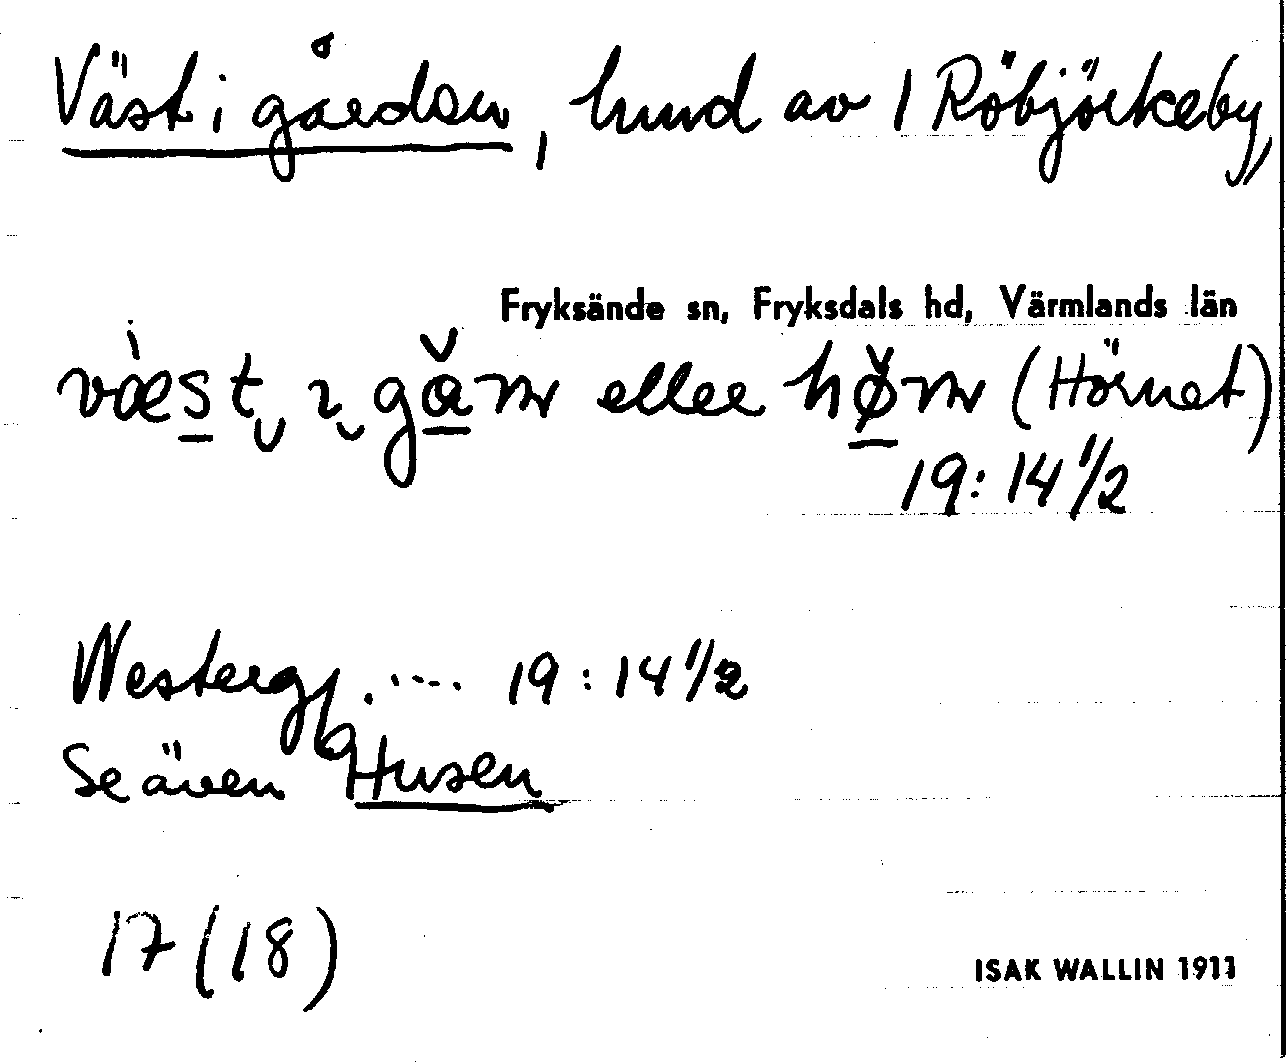 Väst i gården, hmd av 1 Röbjörkeby,
Fryksände sn, Fryksdals hd, Värmlands län
væst ı gån eller høn (Hörnet)
19:14 1/2
Westerg, .... 19:14 1/2
Se även Husen
17 (18)
ISAK WALLIN 1911